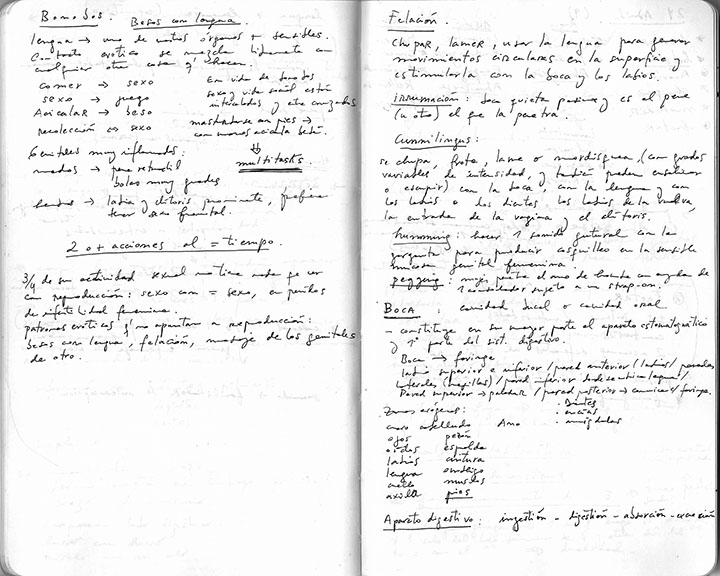 Bonobos. Besos con lengua.
lengua → uno de unitos órganos + sensibles.
Contacto erótico se mezcla libremente con
cualquier otra cosa q' hacen.
comer → sexo
sexo → juego
Acicalar → beso
recolección ↔ sexo
En vida de bonobos
sexo y vida social están
intercalados y entrecruzados
masturbarse con pies →
con manos acicala bebé.
⇓
multitasks.
Genitales muy inflamados:
machos → pene retráctil
bolas muy grandes
hembras → labia y clítoris prominente, prefieren
tener sexo frontal.
2 o + acciones al = tiempo.
3/4 de su actividad sexual no tiene nada q' ver
con reproducción: sexo con = sexo, en períodos
de infertilidad femenina.
patrones eróticos q' no apuntan a reproducción:
besos con lengua, felación, masaje de los genitales
de otro.
Felación.
chupar, lamer, usar la lengua para generar
movimientos circulares en la superficie y
estimularla con la boca y los labios.
irrumación: boca quieta pasiva y es el pene
(u otro) el q' la penetra.
Cunnilingus:
se chupa, frota, lame o mordisquea, (con grados
variables de intensidad, y también pueden ensalivar
o escupir) con la boca, con la lengua y con
los labios o los dientes, los labios de la vulva,
la entrada de la vagina y el clítoris.
humming: hacer 1 sonido gutural con la
garganta para producir cosquilleo en la sensible
mucosa genital femenina.
pegging: mujer penetra el ano de hombre con ayuda de
1 consolador sujeto a un strap-on.
Boca: cavidad bucal o cavidad oral
- constituye en su mayor parte el aparato estomatognático
y 1ª parte del sist. digestivo.
Boca → faringe
labio superior e inferior / pared anterior (labios) / paredes
laterales (mejillas) / pared inferior donde se ubica lengua /
Pared superior → paladar / pared posterior → comunica c/ faringe.
· Dientes
· encías
· amígdalas
Zonas erógenas:
cuero cabelludo Ano
ojos pezón
oídos espalda
labios cintura
lengua ombligo
cuello muslos
axila pies
Aparato digestivo: ingestión - digestión - absorción - excreción